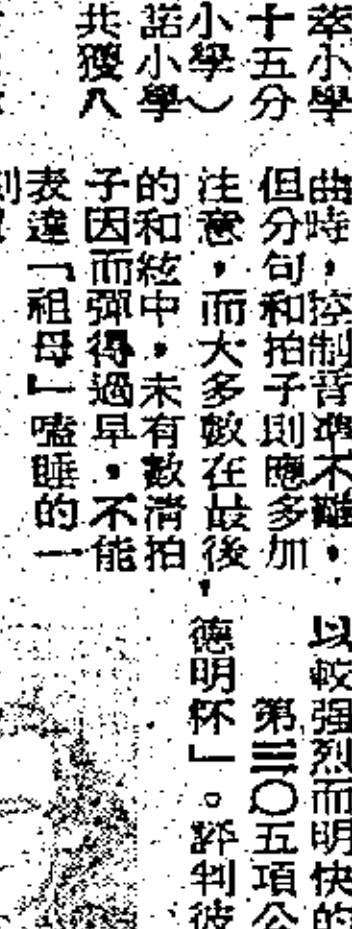 萃小學
十五分
小學）
諾小學
共獲八
曲時，控制音準不難，
但分句和拍子則應多加
注意，而大多數在最後
的和絃中，未有數清拍
子因而彈得過早，不能
表達「祖母」嗑睡的一
刻
以較强烈而明快的
第三〇五項公
德明杯」。評判彼